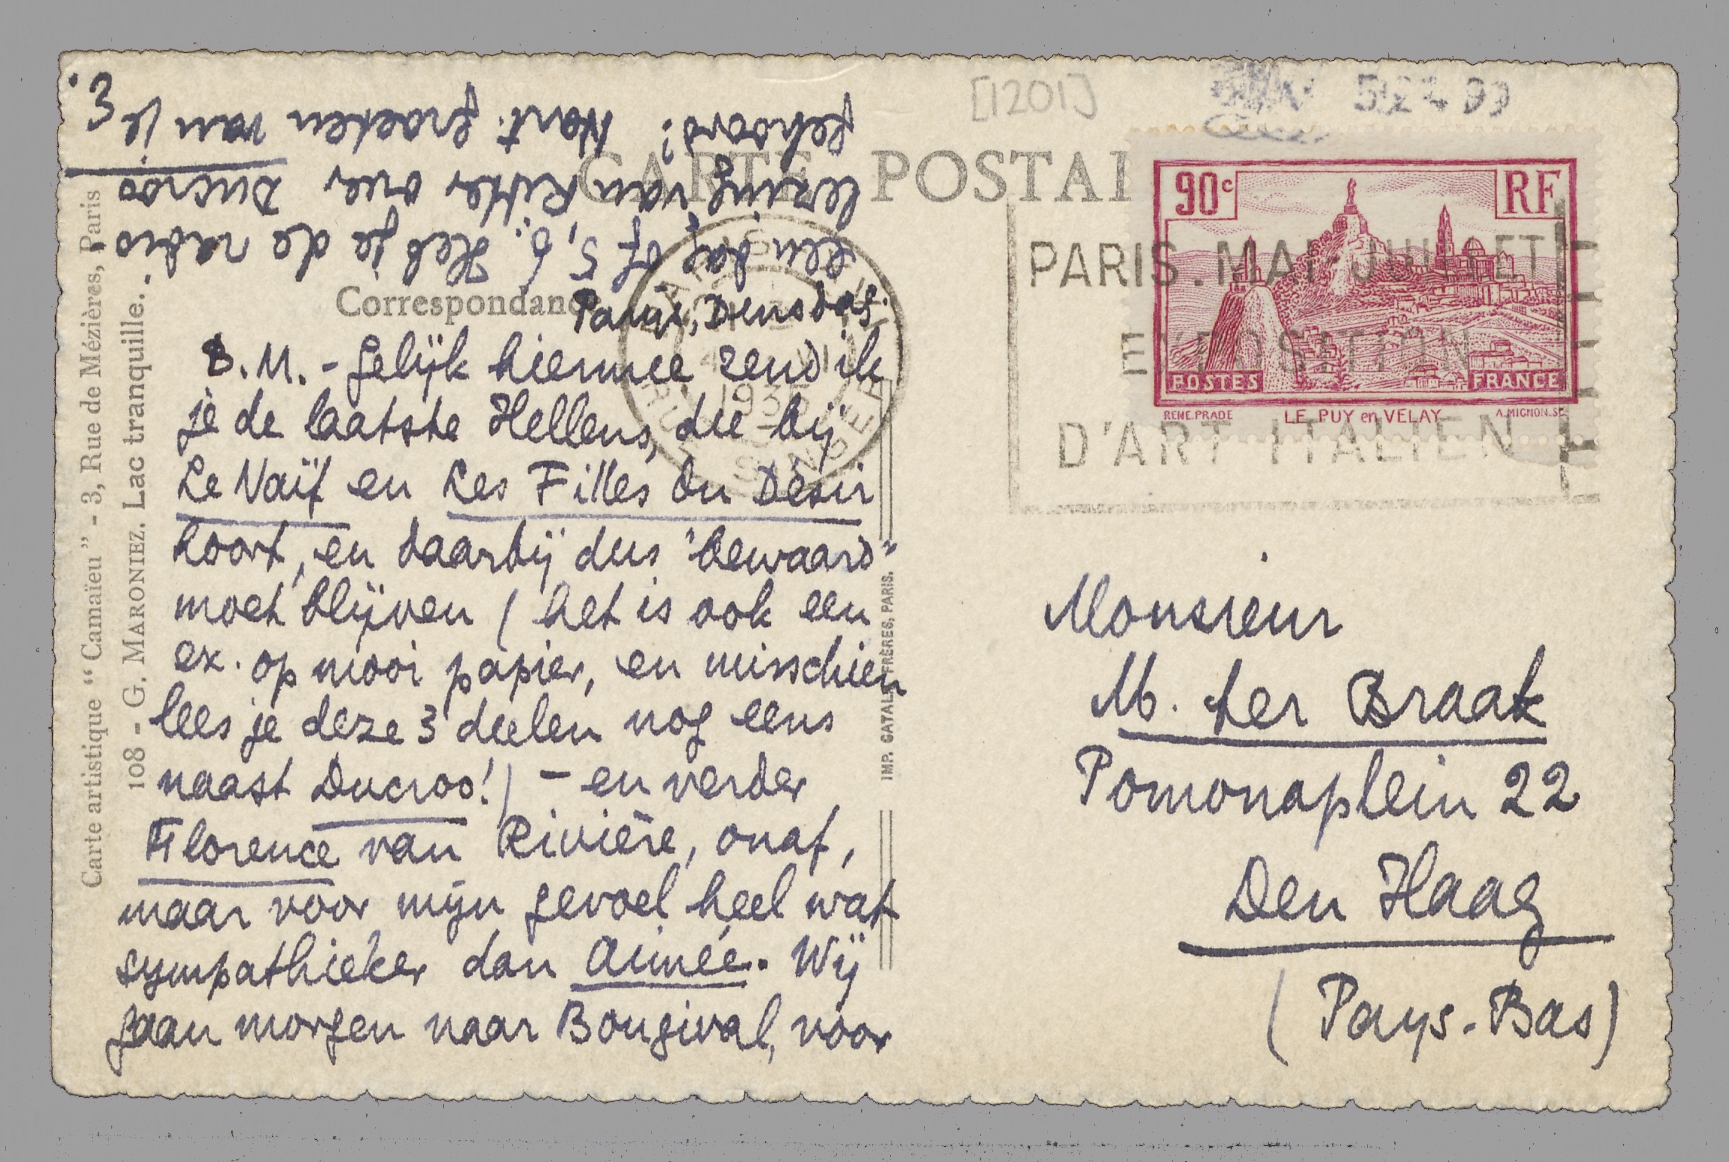 [1201]
CARTE POSTAL
90c
RF
POSTES
FRANCE
RENE.PRADE
LE PUY en VELAY
A.MIGNON.SC
PARIS. MAI-JUILLET
EXPOSITION
D'ART ITALIEN
1935
Correspondance
Parijs, Dinsdag.
B.M. - Gelijk hiermee zend ik
je de laatste Hellens, die bij
Le Naïf en Les Filles du Désir
hoort, en daarbij dus "bewaard"
moet blijven (het is ook een
ex. op mooi papier, en misschien
lees je deze 3 deelen nog eens
naast Ducroo!) - en verder
Florence van Rivière, onaf,
maar voor mijn gevoel heel wat
sympathieker dan Aimée. Wij
gaan morgen naar Bougival, voor
een dag of 5, 6. Heb je de radio-
lezing van Ritter over Ducroo
gehoord? Hart. groeten van je
E.
Monsieur
M. ter Braak
Pomonaplein 22
Den Haag
(Pays-Bas)
Carte artistique "Camaïeu" - 3, Rue de Mézières, Paris
108 - G. MARONIEZ. Lac tranquille.
IMP. CATALA FRÈRES, PARIS.